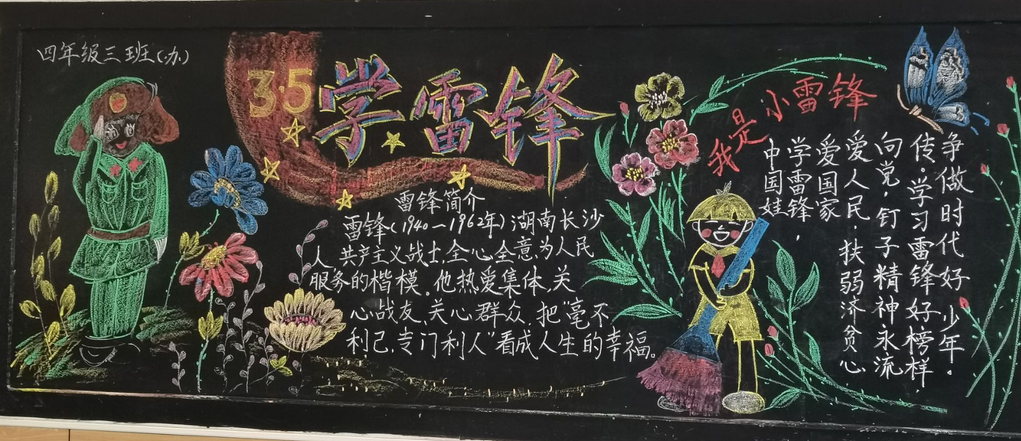 四年级三班(办)
3.5
学雷锋
雷锋简介
雷锋(1940—1962年)湖南长沙
人,共产主义战士,全心全意为人民
服务的楷模。他热爱集体、关
心战友、关心群众,把"毫不
利己,专门利人"看成人生的幸福。
我是小雷锋
中国娃
学雷锋,
爱国家
爱人民,扶弱济贫心
向党,钉子精神永流
传,学习雷锋好榜样
争做时代好少年.